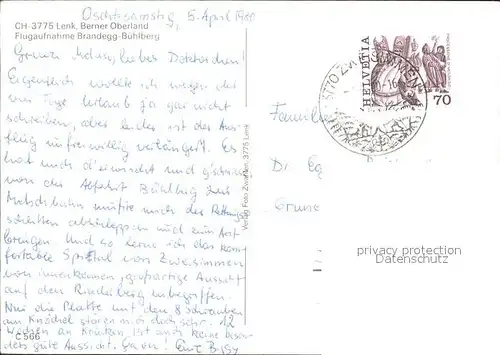 Oschtersamstig, 5. April 1980
CH-3775 Lenk, Berner Oberland
Flugaufnahme Brandegg-Bühlberg
liebes Doktorchen!
Eigentlich wollte ich wegen der
vier Tage Urlaub ja gar nicht
schreiben, aber leider ist der Aus-
flug unfreiwillig verlängert. Es
hat mich erwüscht und
von der Abfahrt Bühlberg zur
Metschbahn müsste mich der Rettungs-
schlitten abschleppen und zum Arzt
bringen. Und so lerne ich das kom-
fortable Spital von Zweisimmen
von innen kennen, grossartige Aussicht
auf den Rinderberg inbegriffen.
Nur die Platte mit den 8 Schrauben
am Knöchel stören mich doch sehr. 12
Wochen an Krücken ist auch keine beson-
ders gute Aussicht.
C 566
Verlag Foto Zwahlen, 3775 Lenk
HELVETIA
70
3770 ZWEISIMMEN
Familie
Dr. Eg
protected by copyright
www.ansichtskarten-center.de